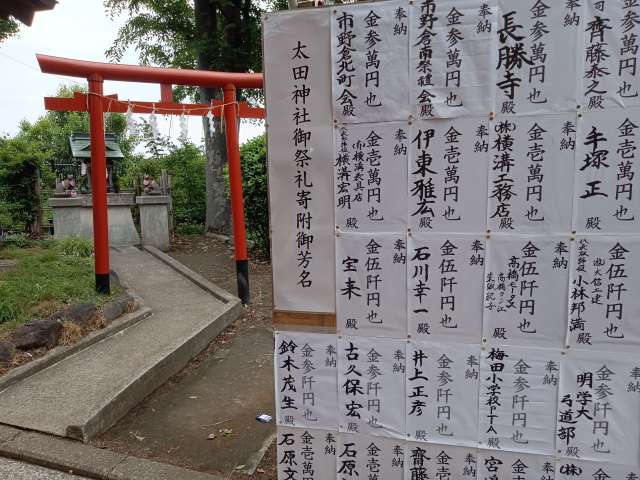 太田神社御祭礼寄附御芳名
奉納
金参萬円也
市野倉北町会殿
奉納
金参萬円也
市野倉甫祭諠会殿
奉納
金参萬円也
長勝寺殿
奉納
金
齋藤泰之殿
奉納
金壱萬円也
横溝宏明殿
奉納
金壱萬円也
伊東雅広殿
奉納
金壱萬円也
㈱横溝工務店殿
奉納
金壱萬円也
手塚正殿
奉納
金伍阡円也
宝来殿
奉納
金伍阡円也
石川幸一殿
奉納
金伍阡円也
殿
奉納
金伍阡円也
小林邦満殿
奉納
金参阡円也
鈴木茂生殿
奉納
金参阡円也
古久保宏殿
奉納
金参阡円也
井上正彦殿
奉納
金参阡円也
梅田小学校PTA殿
奉納
金参阡円也
明学大弓道部殿
奉納
金壱萬
石原文
奉納
金壱
石原
奉納
金壱
齋藤
奉納
金壱
宮
奉納
金壱
㈱